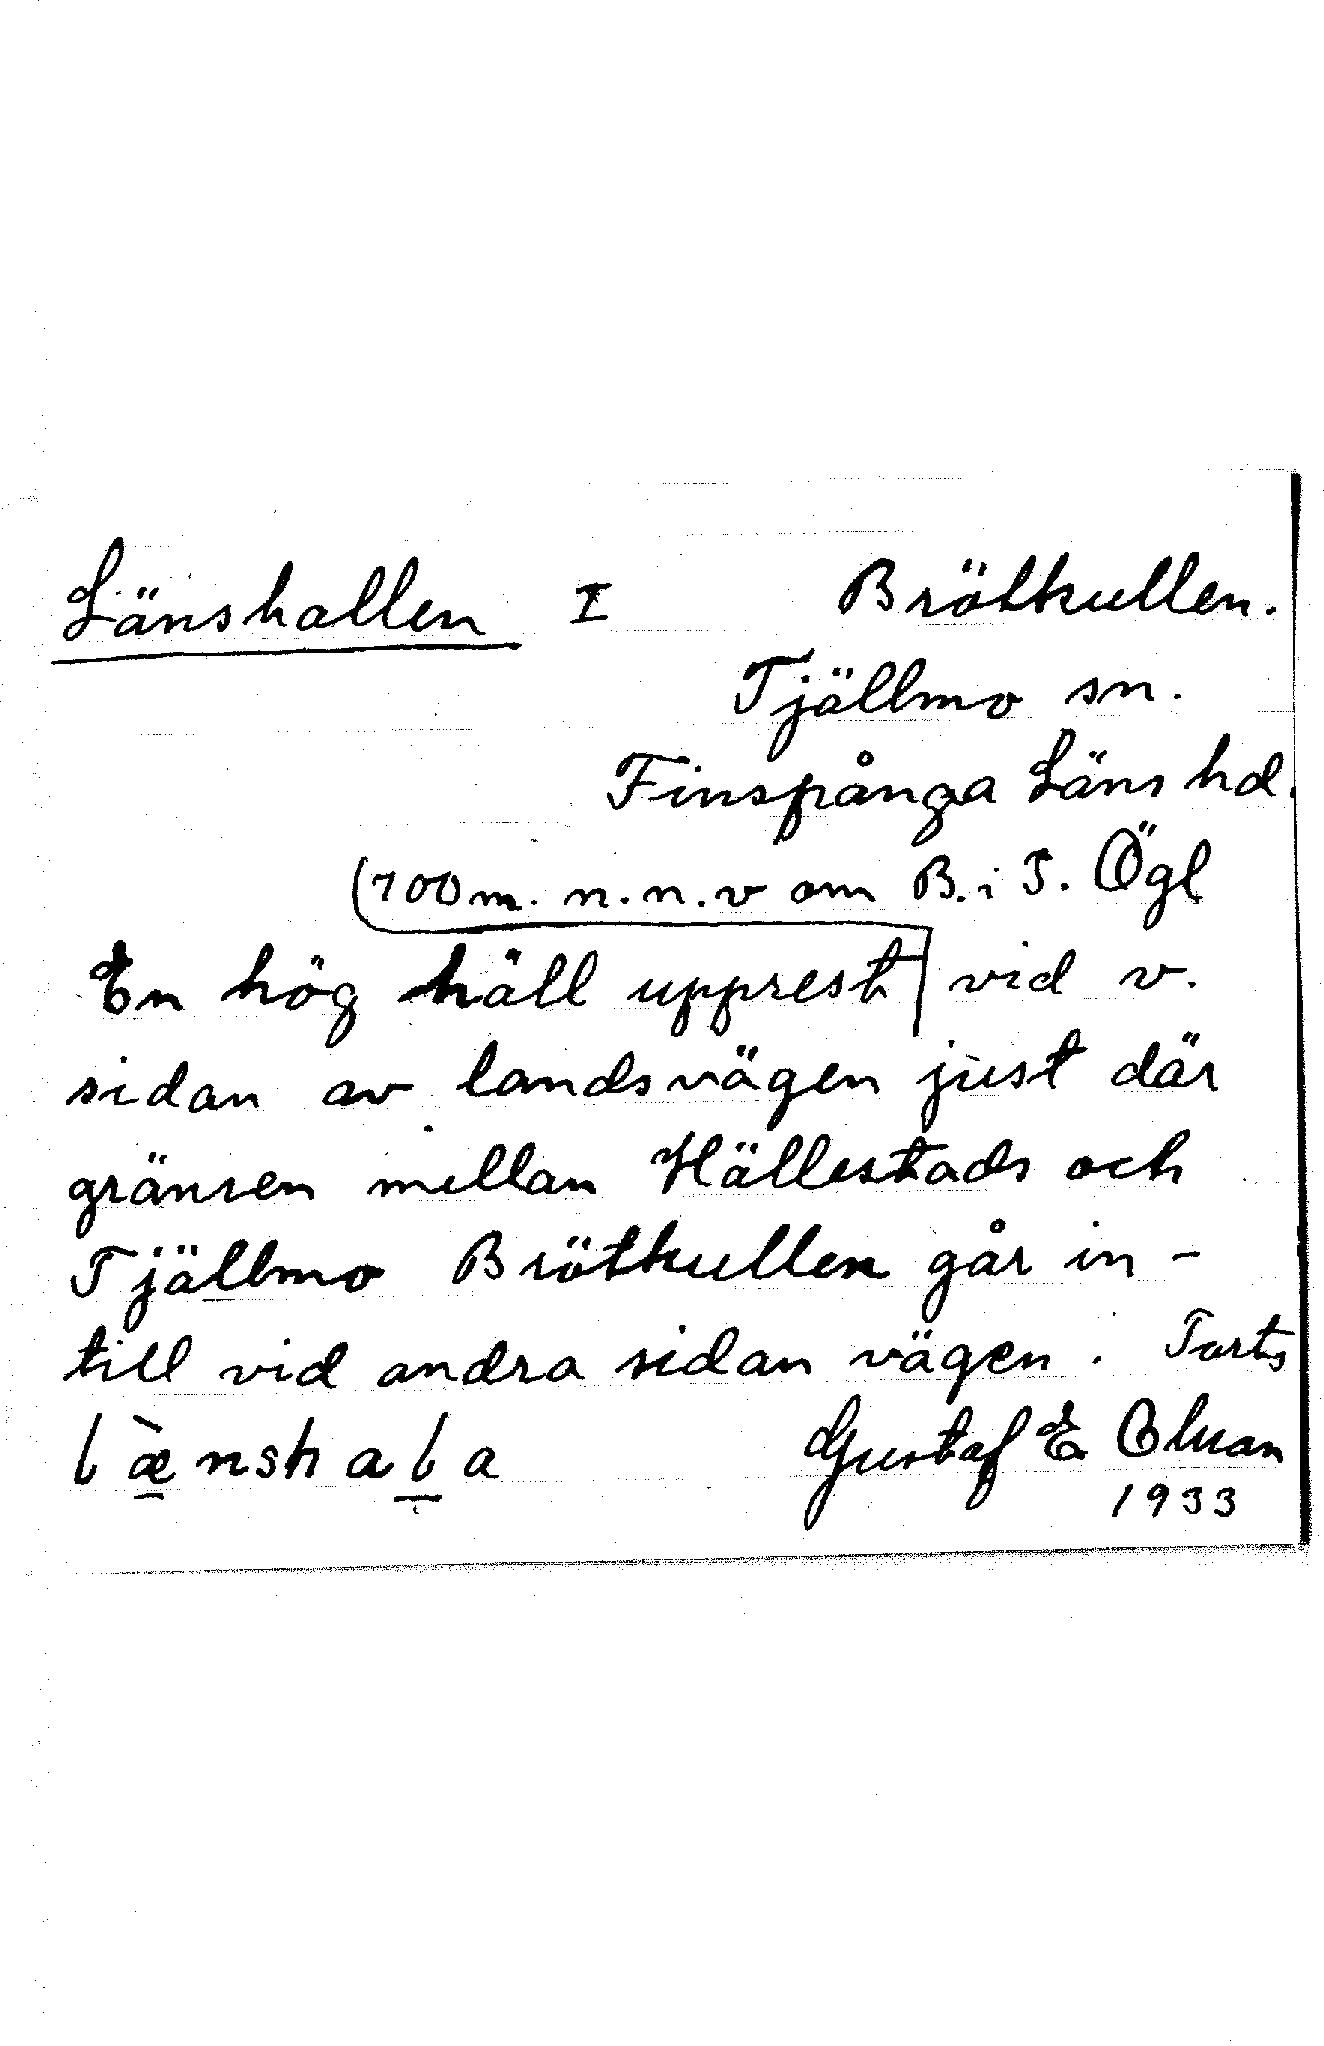 Länshallen I Brötkullen.
Tjällmo sn.
Finspånga Läns hd.
(700 m. n.n.v om B. i T. Ögl
En hög häll upprest vid v.
sidan av landsvägen just där
gränsen mellan Hällestads och
Tjällmo Brötkullen går in-
till vid andra sidan vägen. Forts
lænshala Gustaf E
1933